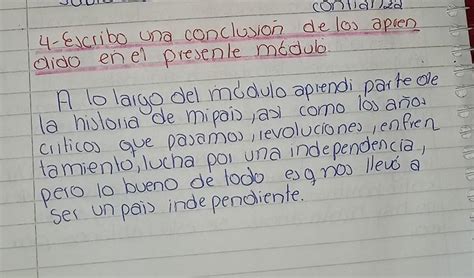 confianza
4-Escribo una conclusión de los apren
dido en el presente módulo.
A lo largo del módulo aprendi parte de
la historia de mi pais, asi como los años
criticos que pasamos, revoluciones, enfren
tamiento, lucha por una independencia,
pero lo bueno de todo es q nos llevó a
ser un pais independiente.